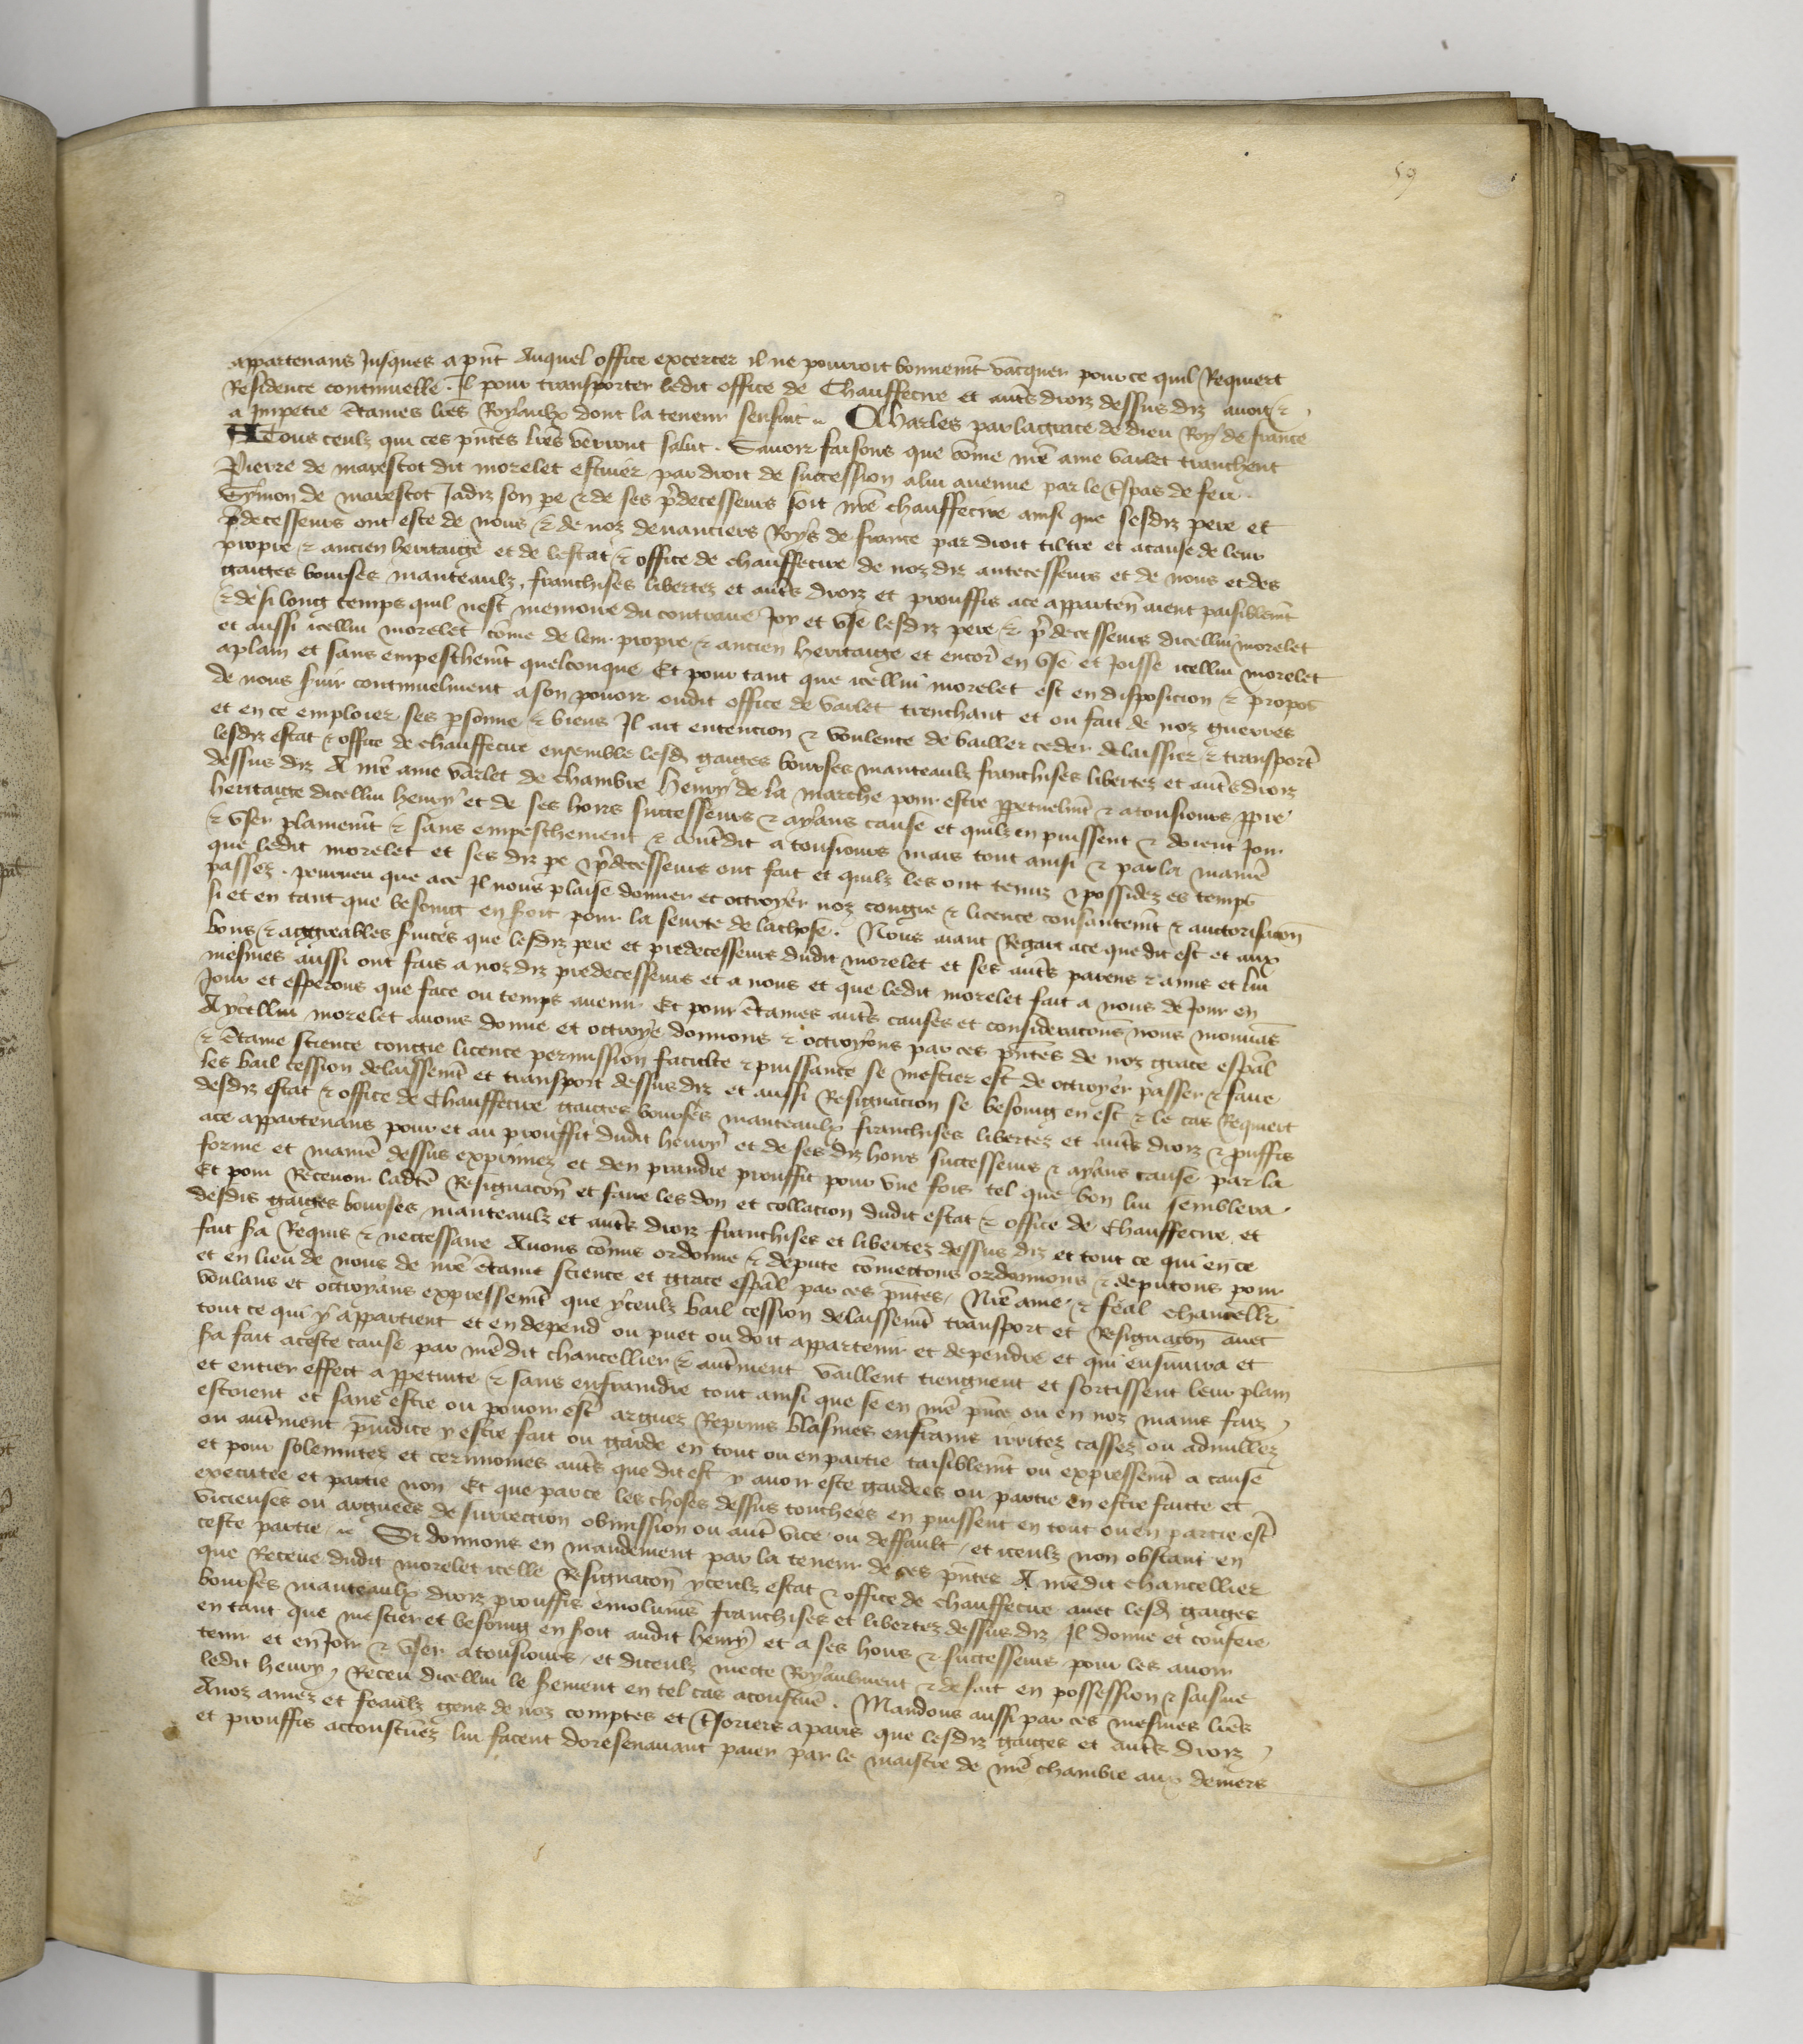 59
appartenans Jusques a pnt Auquel office excercer il ne pourroit bonnemt vacquer pource quil Requiert
Residence continuelle . Il pour transporter ledit office de Chauffecire et auts droiz dessus diz avoit &
a Impetre ctames lres Royaulx dont la teneur sensuit ~ Charles par la grace de dieu Roy de france
A Tous ceulz qui ces pntes lres verront salut . Savoir faisons que come nre ame varlet tranchent
Pierre de marescot dit morelet escuier par droit de succession a lui avenue par le tspas de feu
Symon de marescot Jadiz son pe & de ses pdecesseurs soit nre chauffecire ainsi que sesdiz pere et
pdecesseurs ont este de nous & de noz devanciers Roys de france par droit tiltre et a cause de leur
propre & ancien heritaige et de lestat & office de chauffecire de noz diz antecesseurs et de nous et des
gaiges bourses manteaulz , franchises libertez et auts droiz et prouffis a ce apparten aient paisiblemt
& de si long temps quil nest memoire du contraire Joy et use lesdiz pere & pdecesseurs dicellui morelet
et aussi icellui morelet come de leur propre & ancien heritaige et encor en use et Joisse icellui morelet
a plain et sans empeschemt quelconque Et pour tant que icellui morelet est en disposicion & propos
de nous svir continuelment a son povoir oudit office de varlet trenchant et ou fait de noz guerres
et en ce emploier ses psonne & biens Il ait entencion & voulente de bailler ceder delaissier & transport
lesdiz estat & office de chauffecire ensemble lesd gaiges bourses manteaulz franchises libertez et auts droiz
dessus diz A nre ame varlet de chambre henry de la marche pour estre ppetuelmt & a tousiours ppre
heritaige dicellui henry et de ses hoirs successeurs & ayans cause et quilz en puissent & doient Joir
& user plainemt & sans empeschement & contdit a tousiours mais tout ainsi & par la manie
que ledit morelet et ses diz pe & pdecesseurs ont fait et quilz les ont tenuz & possidez es temps
passez . pourveu que a ce Il nous plaise donner et octroyer noz congie & licence consantemt & auctorisacion
si et en tant que besoing en soit pour la seurte de la chose . Nous aiant Regart a ce que dit est et aux
bons & aggreables svices que lesdiz pere et predecesseurs dudit morelet et ses auts parens & amis et lui
mesmes aussi ont fais a noz diz predecesseurs et a nous et que ledit morelet fait a nous de Jour en
Jour et esperons que face ou temps avenir Et pour ctames auts causes et consideracons nous mouvas
A ycellui morelet avons donne et octroye donnons & octroyons par ces pntes de noz grace espal
& ctaine science congie licence permission faculte & puissance se mestier est de octroyer passer & faire
les bail cession delaissemt et transport dessus diz et aussi Resignacion se besoing en est & le cas Requiert
desdiz estat & office de Chauffecire gaiges bourses manteaulx franchises libertez et auts droiz & puffis
a ce appartenans pour et au prouffit dudit henry et de ses diz hoirs successeurs & ayans cause par la
forme et manie dessus exprimez et den prandre prouffit pour une fois tel que bon lui semblera
Et pour Recevoir ladte Resignacon et faire les don et collacion dudit estat & office de Chauffecire et
desdis gaiges bourses manteaulz et auts droiz franchises et libertez dessus diz et tout ce qui en ce
fait sa Requis & neccessaire Avons comis ordonne & depute comectons ordonnons & deputons pour
et en lieu de nous de nre ctaine science et grace espal par ces pntes , Nre ame & feal chancellr
voulans et octroyans expressemt que yceulz bail cession delaissemt transport et Resignacon avec
tout ce qui y appartient et en depend ou puet ou doit appartenir et dependre et qui ensuivra et
sa fait a ceste cause par nre dit chancellier & autment vaillent tiengnent et sortissent leur plain
et entier effect a ppetuite & sans enfraindre tout ainsi que se en nre pnce ou en noz mains faiz
estoient et sans estre ou povoir est arguez Reprins blasmes enfrains irritez cassez ou adnullez
ou autment piudice y estre fait ou garde en tout ou en partie taisiblemt ou expressemt a cause
et pour solennitez et cerimonies auts que dit est y avoir este gardees ou partie en estre faicte et
executee et partie non Et que par ce les choses dessus touchees en puissent en tout ou en partie est
vicieuses ou arguees de surrection obmission ou aut vice ou deffault , et iceulz non obstant en
ceste partie . ~ Si donnons en mandement par la teneur de ces pntes A nre dit chancellier
que Receue dudit morelet icelle Resignacon yceulz estat & office de chauffecire avec lesd gaiges
bourses manteaulx droiz prouffis emolumes franchises et libertez dessus diz , Il donne et confere
en tant que mestier et besoing en soit audit henry et a ses hoirs & successeurs pour les avoir
tenir et en Joir & user a tousiours , et diceulz mecte Royaulment & de fait en possession & saisine
ledit henry , Receu dicellui le sement en tel cas acoustume . Mandons aussi par ces mesmes lres
A noz amez et feaulz gens de noz comptes et tsoriers a paris que lesdiz gaiges et auts droiz
et prouffis accoustuez lui facent doresenavant paier par le maistre de nre chambre aux deniers